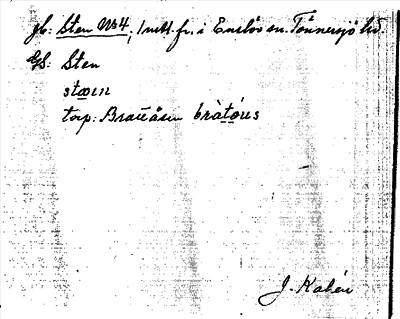 jb: Sten No 4, 1 mtl. fr. i Enslöv sn. Tönnersjö hd.
gS: Sten
stæin
torp: Brattåsen bràtóus
J. Kalén